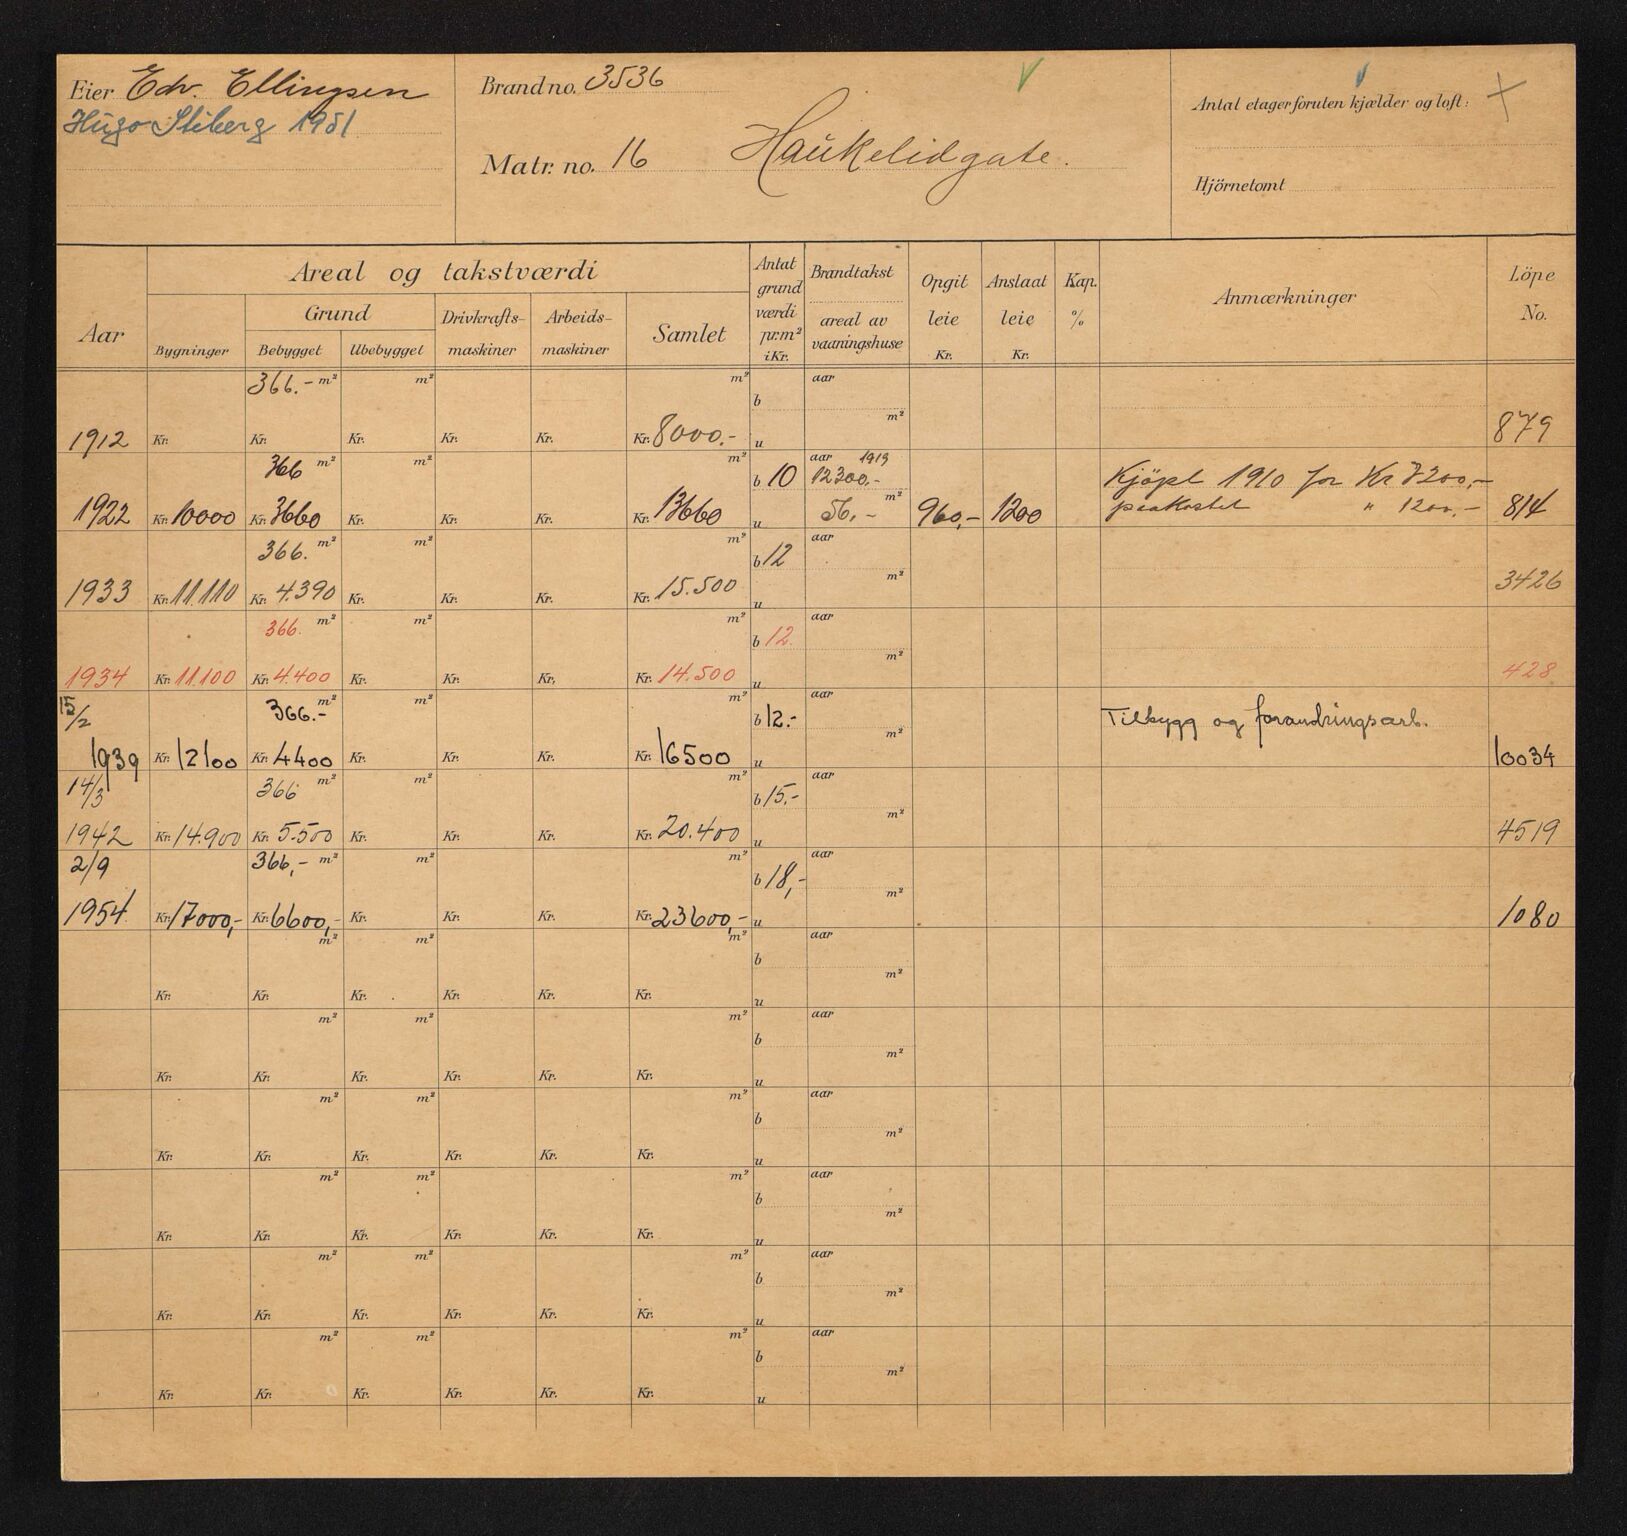 Eier Edv. Ellingsen
Hugo Stiberg 1951
Brand no. 3536
Matr. no. 16 Haukelidgate.
Antal etager foruten kjælder og loft:
Hjörnetomt
Aar
Areal og takstværdi
Bygninger
Grund
Bebygget
Ubebygget
Drivkrafts-
maskiner
Arbeids-
maskiner
Samlet
Antat
grund
værdi
pr. m²
i Kr.
Brandtakst
areal av
vaaningshuse
Opgit
leie
Kr.
Anslaat
leie
Kr.
Kap.
%
Anmærkninger
Löpe
No.
366.- m² m² m² b aar
m²
1912 Kr. Kr. Kr. Kr. Kr. Kr. 8000.- u 879
366 m² m² m² b 10 aar 1919
12300.- Kjöpt 1910 for Kr 7200,-
1922 Kr. 10000 Kr. 3660 Kr. Kr. Kr. Kr. 13660 u 56,- m² 960,- 1200 paakostet " 1200,- 814
366. m² m² m² b 12 aar
m²
1933 Kr. 11.110 Kr. 4.390 Kr. Kr. Kr. Kr. 15.500 u 3426
366. m² m² m² b 12. aar
m²
1934 Kr. 11.100 Kr. 4.400 Kr. Kr. Kr. Kr. 14.500 u 428
15/2 366.- m² m² m² b 12.- aar Tilbygg og forandringsarb.
m²
1939 Kr. 12100 Kr. 4400 Kr. Kr. Kr. Kr. 16500 u 10034
14/3 366 m² m² m² b 15.- aar
m²
1942 Kr. 14.900 Kr. 5.500 Kr. Kr. Kr. Kr. 20.400 u 4519
2/9 366,- m² m² m² b 18,- aar
m²
1954 Kr. 17000,- Kr. 6600,- Kr. Kr. Kr. Kr. 23600,- u 1080
m² m² m² b aar
m²
Kr. Kr. Kr. Kr. Kr. Kr. u
m² m² m² b aar
m²
Kr. Kr. Kr. Kr. Kr. Kr. u
m² m² m² b aar
m²
Kr. Kr. Kr. Kr. Kr. Kr. u
m² m² m² b aar
m²
Kr. Kr. Kr. Kr. Kr. Kr. u
m² m² m² b aar
m²
Kr. Kr. Kr. Kr. Kr. Kr. u
m² m² m² b aar
m²
Kr. Kr. Kr. Kr. Kr. Kr. u